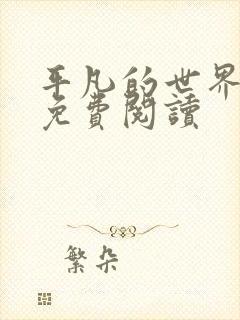 平凡的世界
免費閱讀
繁朵